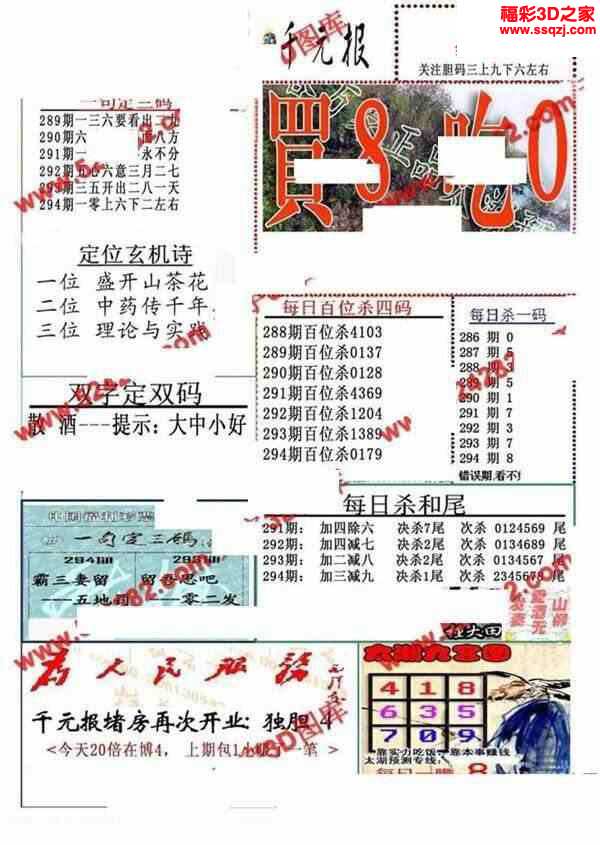 福彩3D之家
www.ssqzj.com
千元报
关注胆码三上九下六左右
買8 吃0
一句定三码
289期一三六要看出二九
290期六 面八方
291期一 永不分
292期五心六意三月二七
293期三五开出二八一天
294期一零上六下二左右
定位玄机诗
一位 盛开山茶花
二位 中药传千年
三位 理论与实践
双字定双码
散 酒---提示:大中小好
每日百位杀四码
288期百位杀4103
289期百位杀0137
290期百位杀0128
291期百位杀4369
292期百位杀1204
293期百位杀1389
294期百位杀0179
每日杀一码
286 期 0
287 期 5
288 期 3
289 期 5
290 期 1
291 期 7
292 期 3
293 期 7
294 期 8
错误期,看不
每日杀和尾
291期: 加四除六 决杀7尾 次杀 0124569 尾
292期: 加四减七 决杀2尾 次杀 0134689 尾
293期: 加二减八 决杀1尾 次杀 0134567 尾
294期: 加三减九 决杀1尾 次杀 2345678 尾
一句定三碼
霸三妻留
---五地
留吾思吧
---零二发
为人民服务
千元报堵房再次开业:独胆 4
<今天20倍在博4, 上期包1小赚了一笔 >
太湖九宫图
4 1 8
6 3 5
7 0 9
靠实力吃饭,靠本事赚钱
太湖预测专线:
每日一胆 8